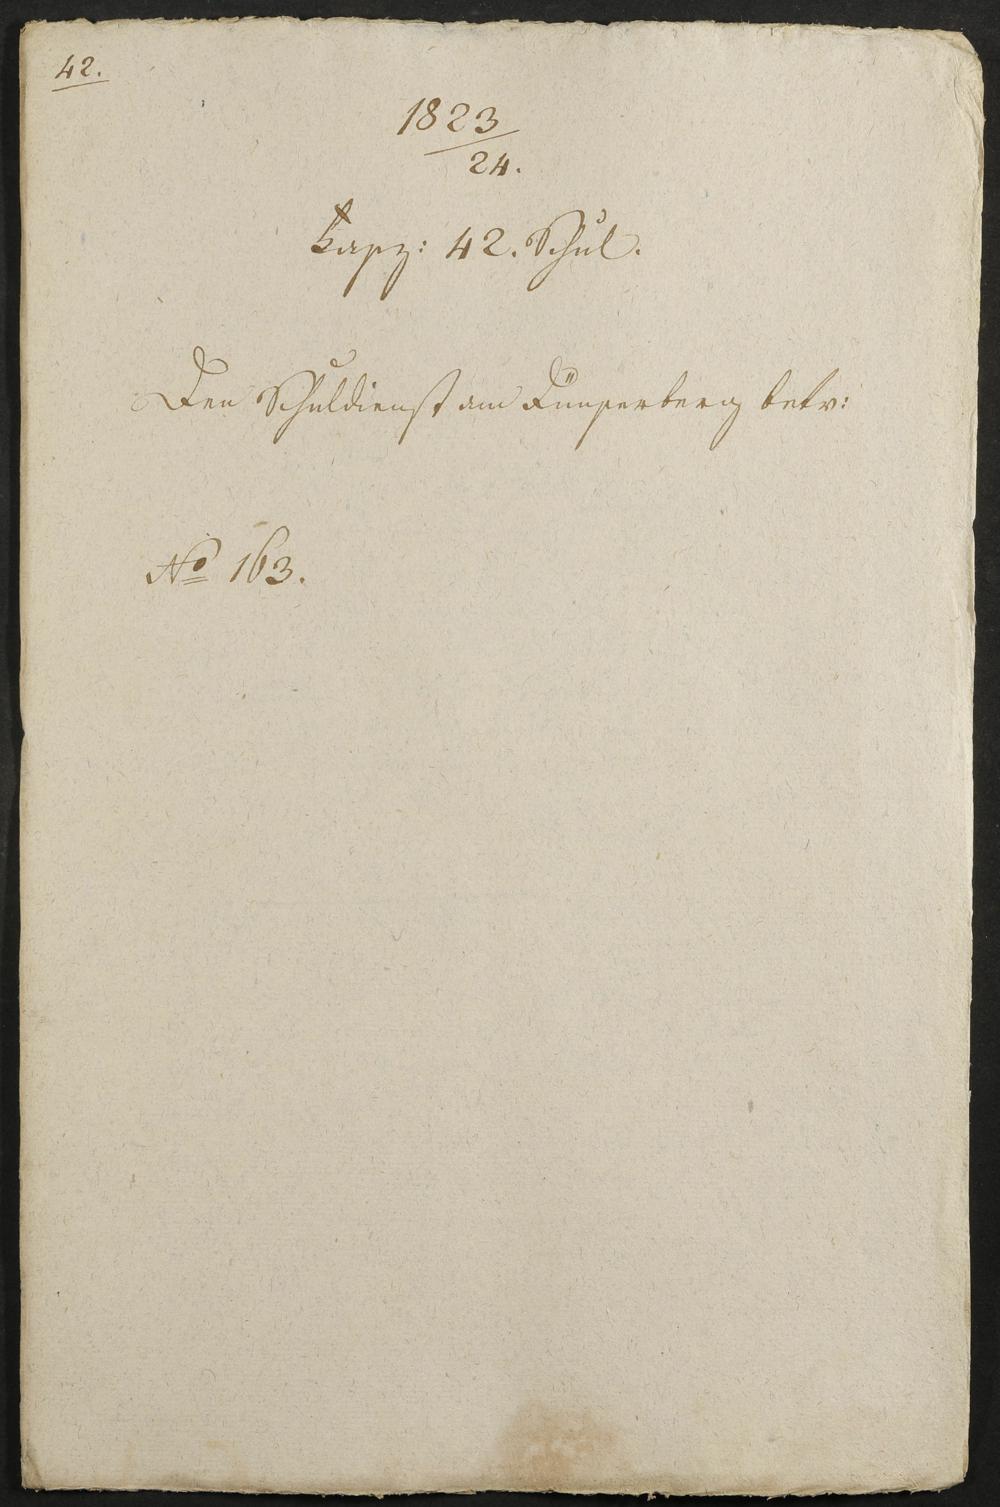 42.
1823
24.
Fasz: 42. Schul.
Den Schuldienst am Dünserberg betr:
No 163.